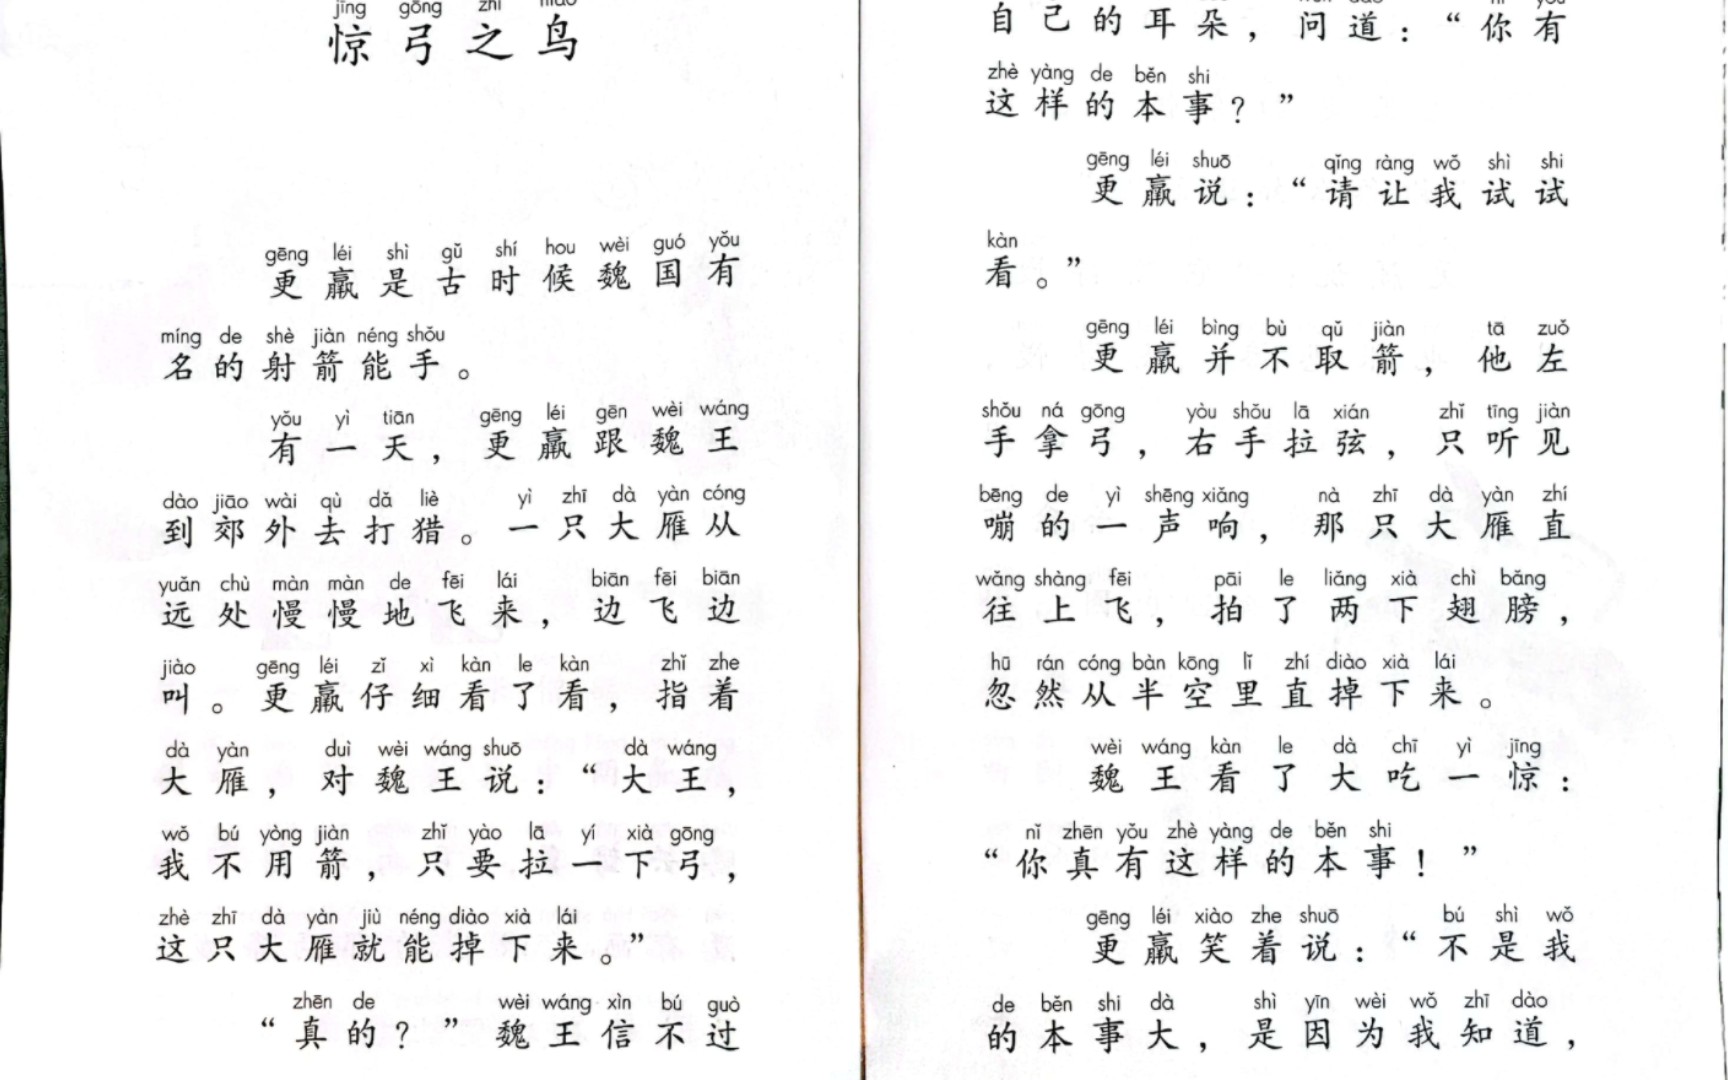 jīng gōng zhī niǎo
惊弓之鸟
gēng léi shì gǔ shí hou wèi guó yǒu
更羸是古时候魏国有
míng de shè jiàn néng shǒu
名的射箭能手。
yǒu yì tiān gēng léi gēn wèi wáng
有一天，更羸跟魏王
dào jiāo wài qù dǎ liè yì zhī dà yàn cóng
到郊外去打猎。一只大雁从
yuǎn chù màn màn de fēi lái biān fēi biān
远处慢慢地飞来，边飞边
jiào gēng léi zǐ xì kàn le kàn zhǐ zhe
叫。更羸仔细看了看，指着
dà yàn duì wèi wáng shuō dà wáng
大雁，对魏王说：“大王，
wǒ bú yòng jiàn zhǐ yào lā yí xià gōng
我不用箭，只要拉一下弓，
zhè zhī dà yàn jiù néng diào xià lái
这只大雁就能掉下来。”
zhēn de wèi wáng xìn bú guò
“真的？”魏王信不过
自己的耳朵，问道：“你有
zhè yàng de běn shi
这样的本事？”
gēng léi shuō qǐng ràng wǒ shì shi
更羸说：“请让我试试
kàn
看。”
gēng léi bìng bù qǔ jiàn tā zuǒ
更羸并不取箭，他左
shǒu ná gōng yòu shǒu lā xián zhǐ tīng jiàn
手拿弓，右手拉弦，只听见
bēng de yì shēng xiǎng nà zhī dà yàn zhí
嘣的一声响，那只大雁直
wǎng shàng fēi pāi le liǎng xià chì bǎng
往上飞，拍了两下翅膀，
hū rán cóng bàn kōng lǐ zhí diào xià lái
忽然从半空里直掉下来。
wèi wáng kàn le dà chī yì jīng
魏王看了大吃一惊：
nǐ zhēn yǒu zhè yàng de běn shi
“你真有这样的本事！”
gēng léi xiào zhe shuō bú shì wǒ
更羸笑着说：“不是我
de běn shi dà shì yīn wèi wǒ zhī dào
的本事大，是因为我知道，